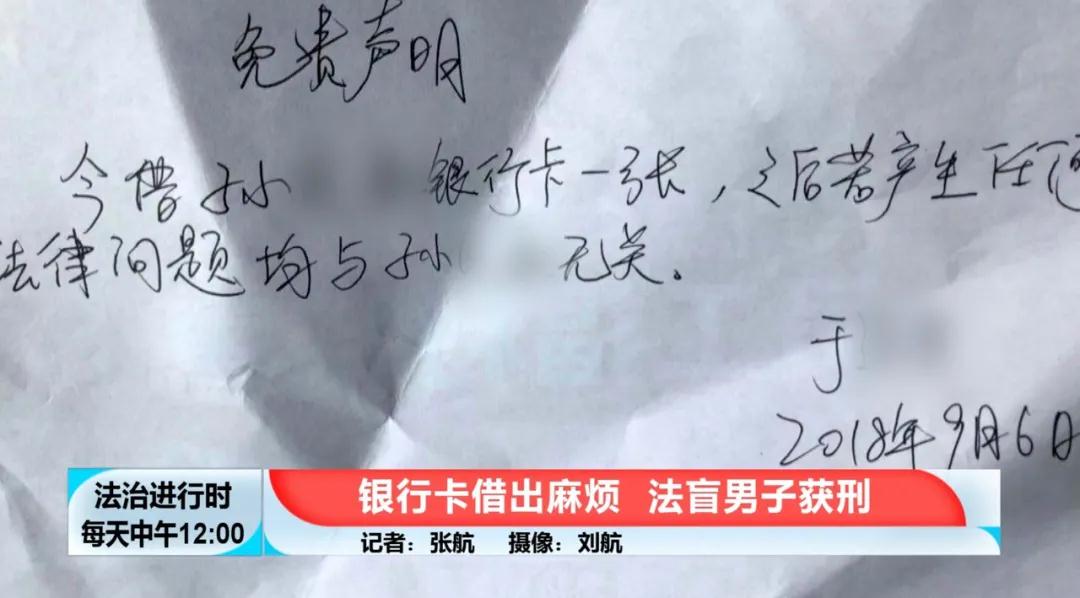 免责声明
今借孙 银行卡一张，之后若产生任何
法律问题均与孙 无关。
于
2018年9月6日
法治进行时
每天中午12:00
银行卡借出麻烦 法盲男子获刑
记者：张航 摄像：刘航